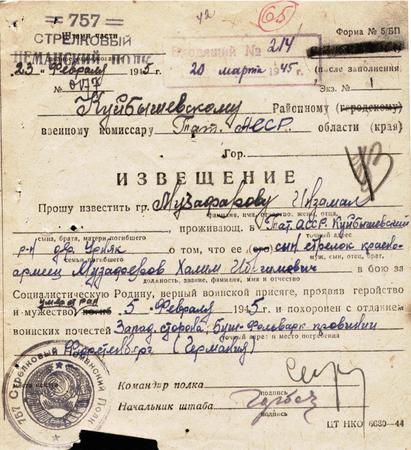 757
СТРЕЛКОВЫЙ
НЕМАНСКИЙ ПОЛК
65
Форма № 5/БП
Входящий № 214
20 марта 1945 г.
23 Февраля 1945
(после заполнения)
№
Экз. № 1
Куйбышевскому Районному (городскому)
военному комиссару Тат. АССР. области (края)
Гор.
ИЗВЕЩЕНИЕ
Прошу известить гр. Музафарову
фамилия, имя, отчество: жена, отца,
сына, брата, матери погибшего
проживающ. в Тат. АССР Куйбышевский
р-н
точный адрес
семьи погибшего
о том, что ее (его) сын стрелок красно-
муж, сын, отец, брат,
армеец Музафаров Халим в бою за
должность, звание, фамилия, имя и отчество
Социалистическую Родину, верный воинской присяге, проявив геройство
и мужество 5 Февраля 1945 г. и похоронен с отданием
воинских почестей Запад. сторона, Фольварк провинции
точный адрес: и место погребения
(Германия)
757 Стрелковый Неманский Полк
Командир полка
подпись
Начальник штаба
подпись
ЦТ НКО 6680—44